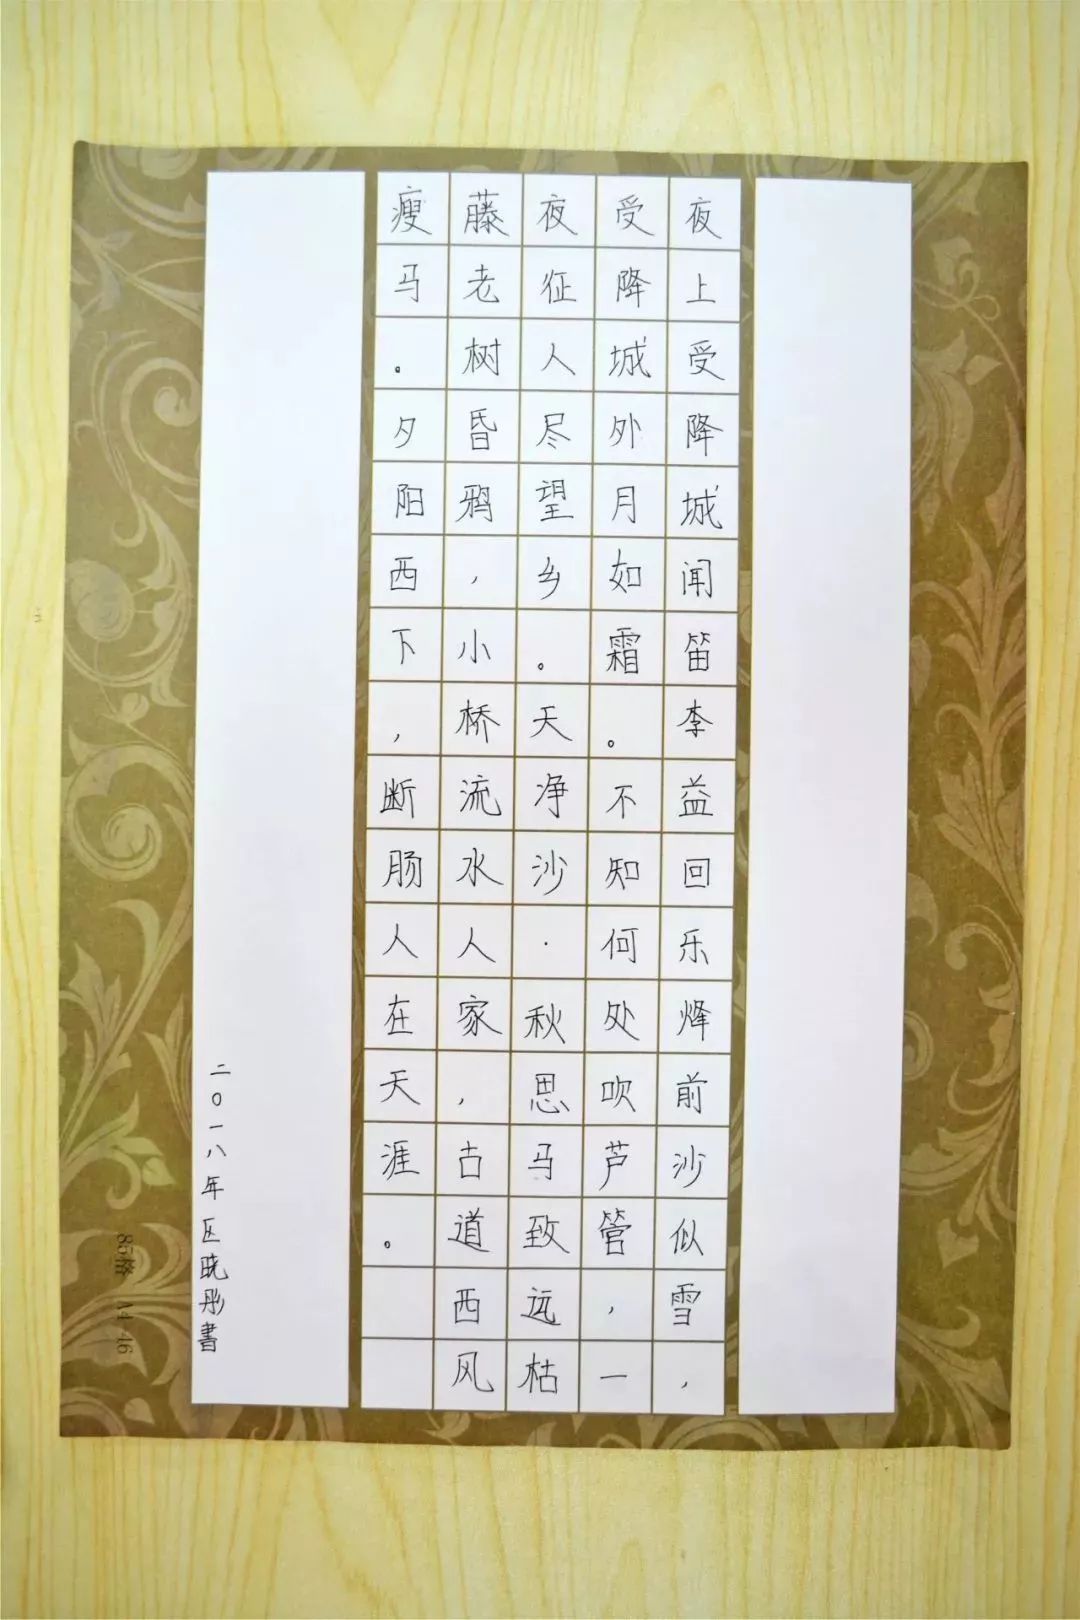 夜上受降城闻笛李益回乐烽前沙似雪，
受降城外月如霜。不知何处吹芦管，一
夜征人尽望乡。天净沙·秋思马致远枯
藤老树昏鸦，小桥流水人家，古道西风
瘦马。夕阳西下，断肠人在天涯。
二〇一八年区晓彤書
85格 A4-46